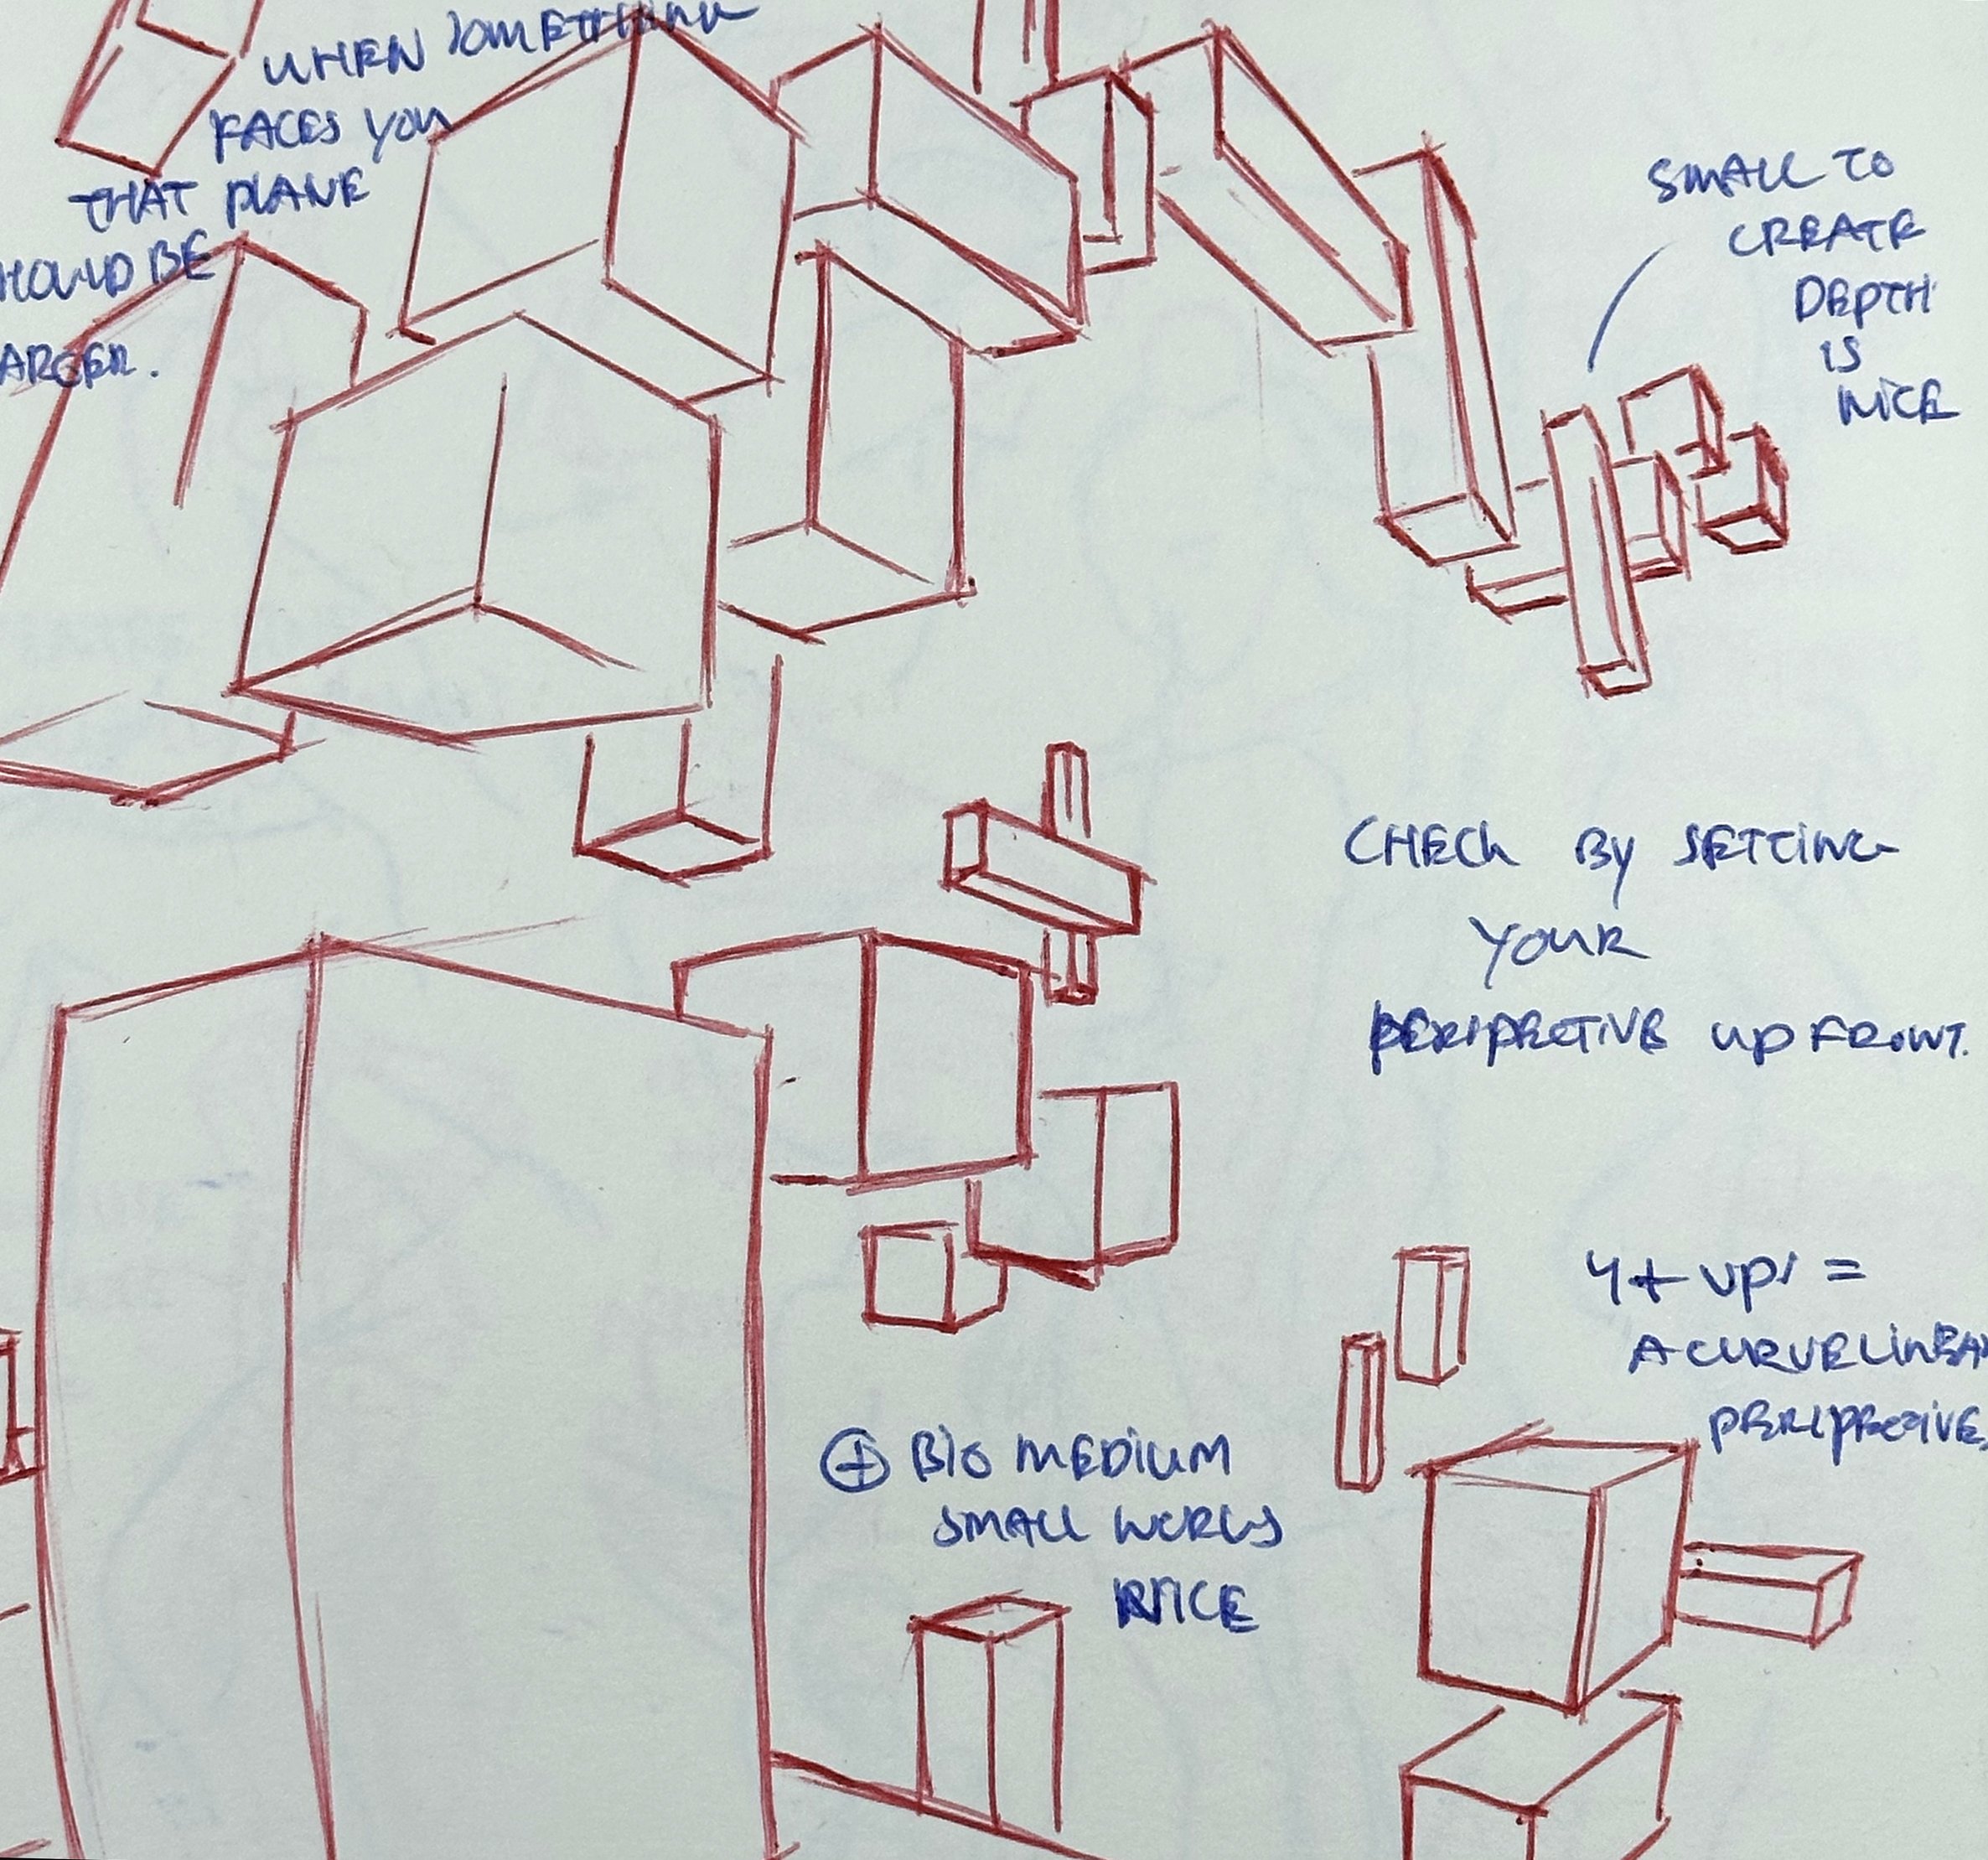 WHEN SOMETHING
FACES YOU
THAT PLANE
HOULD BE
ARGER.
SMALL TO
CREATE
DEPTH
IS
NICE
CHECK BY SETTING
YOUR
PERSPECTIVE UP FRONT.
4+ VPS =
A CURVELINEAR
PERSPECTIVE
+ BIG MEDIUM
SMALL WORKS
NICE